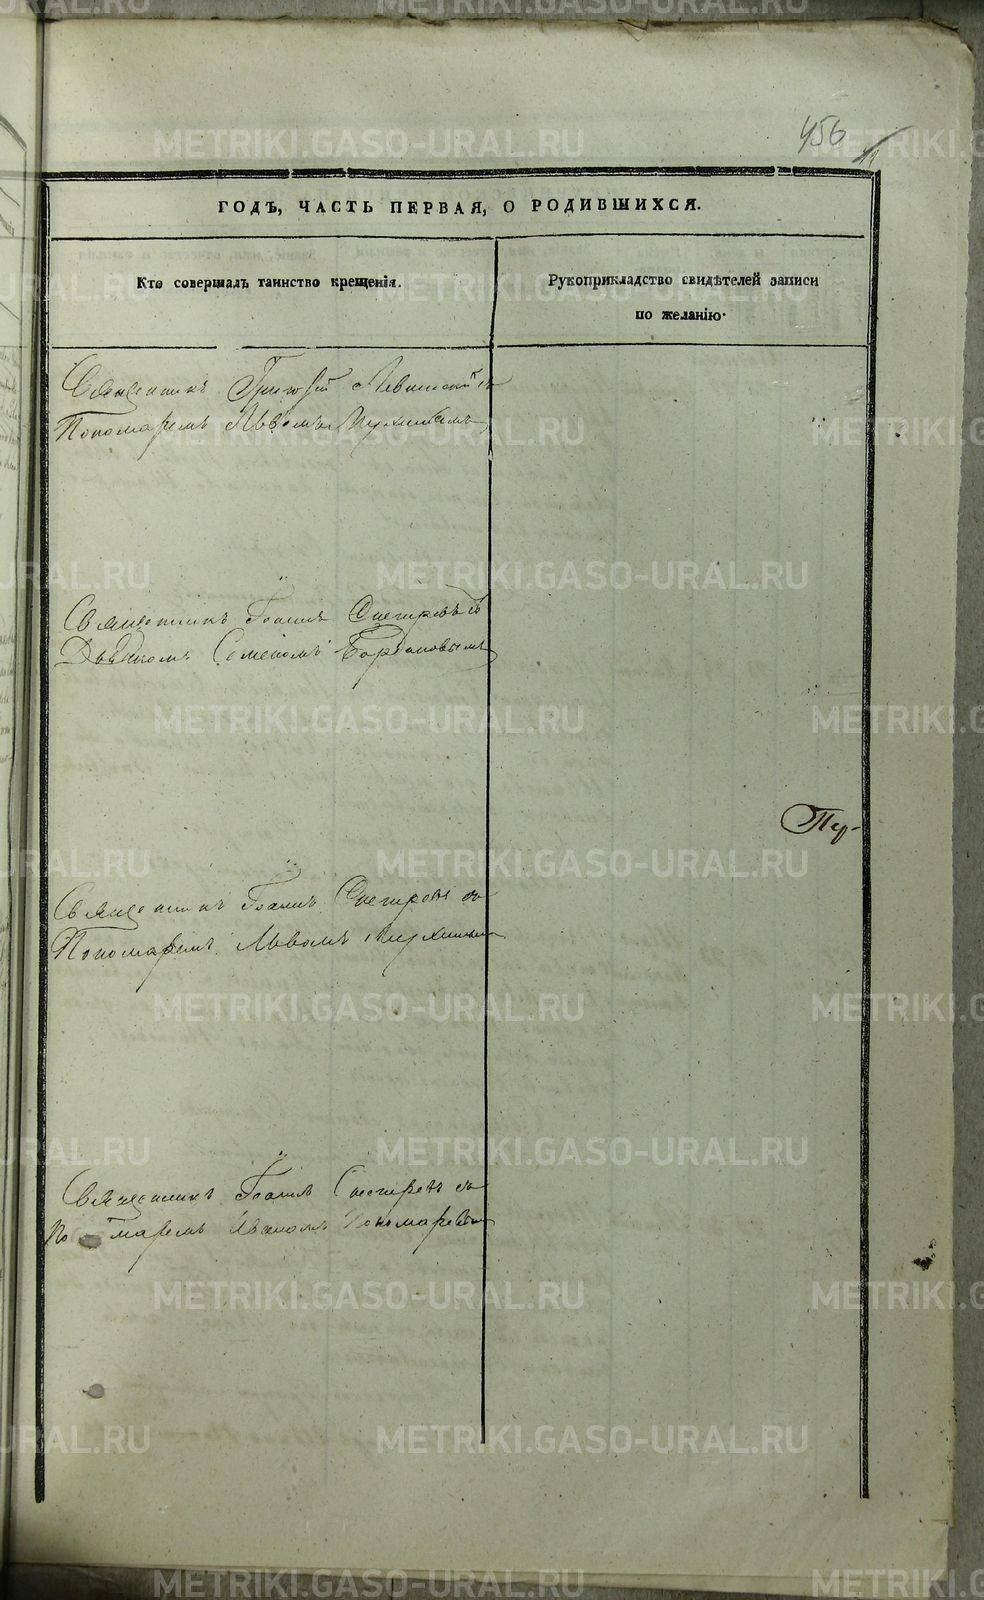 456
11
ГОДЪ, ЧАСТЬ ПЕРВАЯ, О РОДИВШИХСЯ.
Кто совершалъ таинство крещенія.
Рукоприкладство свидѣтелей записи
по желанію.
Священникъ Григорій Левитскій съ
Пономаремъ Львомъ
Священникъ Іоаннъ Снегиревъ съ
Дьячкомъ Семеномъ
Пер-
Священникъ Іоаннъ Снегиревъ съ
Пономаремъ Львомъ
Священникъ Іоаннъ Снегиревъ съ
Пономаремъ Пономаревым
METRIKI.GASO-URAL.RU